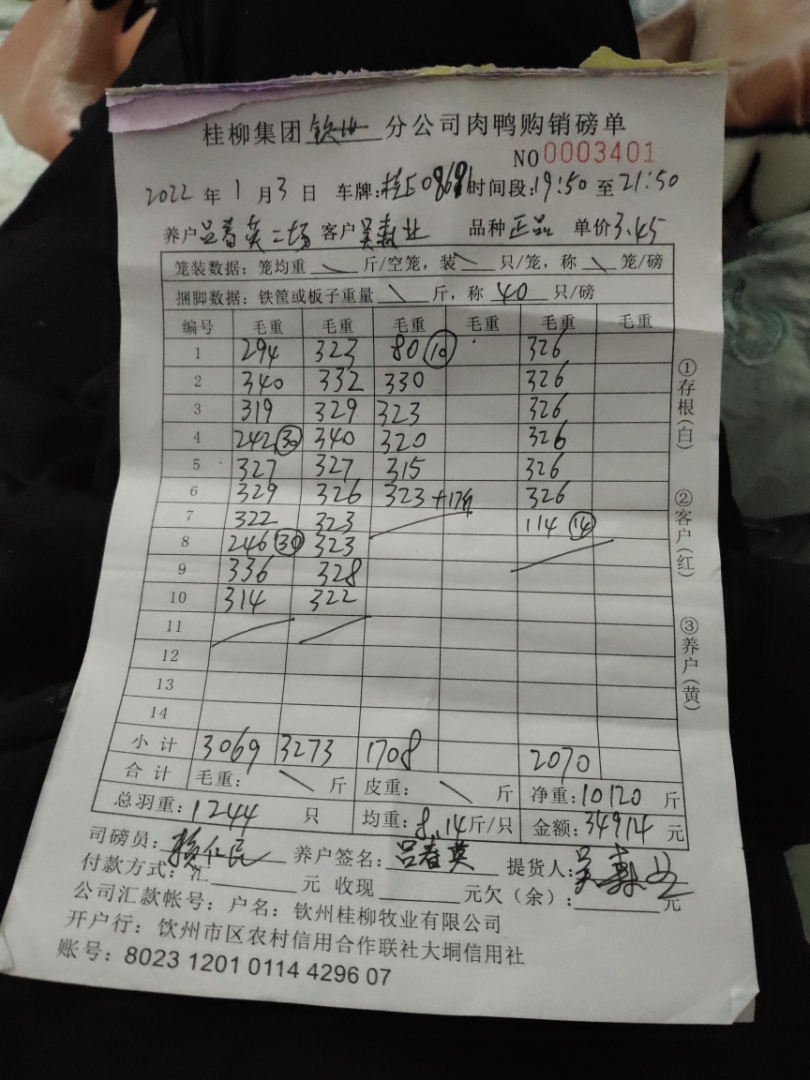 桂柳集团 钦州 分公司肉鸭购销磅单
NO 0003401
2022 年 1 月 3 日 车牌: 桂E08681 时间段: 19:50 至 21:50
养户 吕春英二场 客户 吴寿业 品种 正品 单价 3.45
笼装数据: 笼均重 \ 斤/空笼, 装 \ 只/笼, 称 \ 笼/磅
捆脚数据: 铁筐或板子重量 \ 斤, 称 40 只/磅
编号 毛重 毛重 毛重 毛重 毛重 毛重
1 294 323 80 ⑩ 326
2 340 332 330 326
3 319 329 323 326
4 242 ㉚ 340 320 326
5 327 327 315 326
6 329 326 323 +17 326
7 322 323 114 ⑭
8 246 ㉚ 323
9 336 328
10 314 322
11
12
13
14
小计 3069 3273 1708 2070
合计 毛重: \ 斤 皮重: \ 斤 净重: 10120 斤
总羽重: 1244 只 均重: 8.14 斤/只 金额: 34914 元
司磅员: 养户签名: 吕春英 提货人: 吴寿业
付款方式: 汇 元 收现 元欠(余): 元
公司汇款帐号: 户名: 钦州桂柳牧业有限公司
开户行: 钦州市区农村信用合作联社大垌信用社
账号: 8023 1201 0114 4296 07
①存根(白)
②客户(红)
③养户(黄)